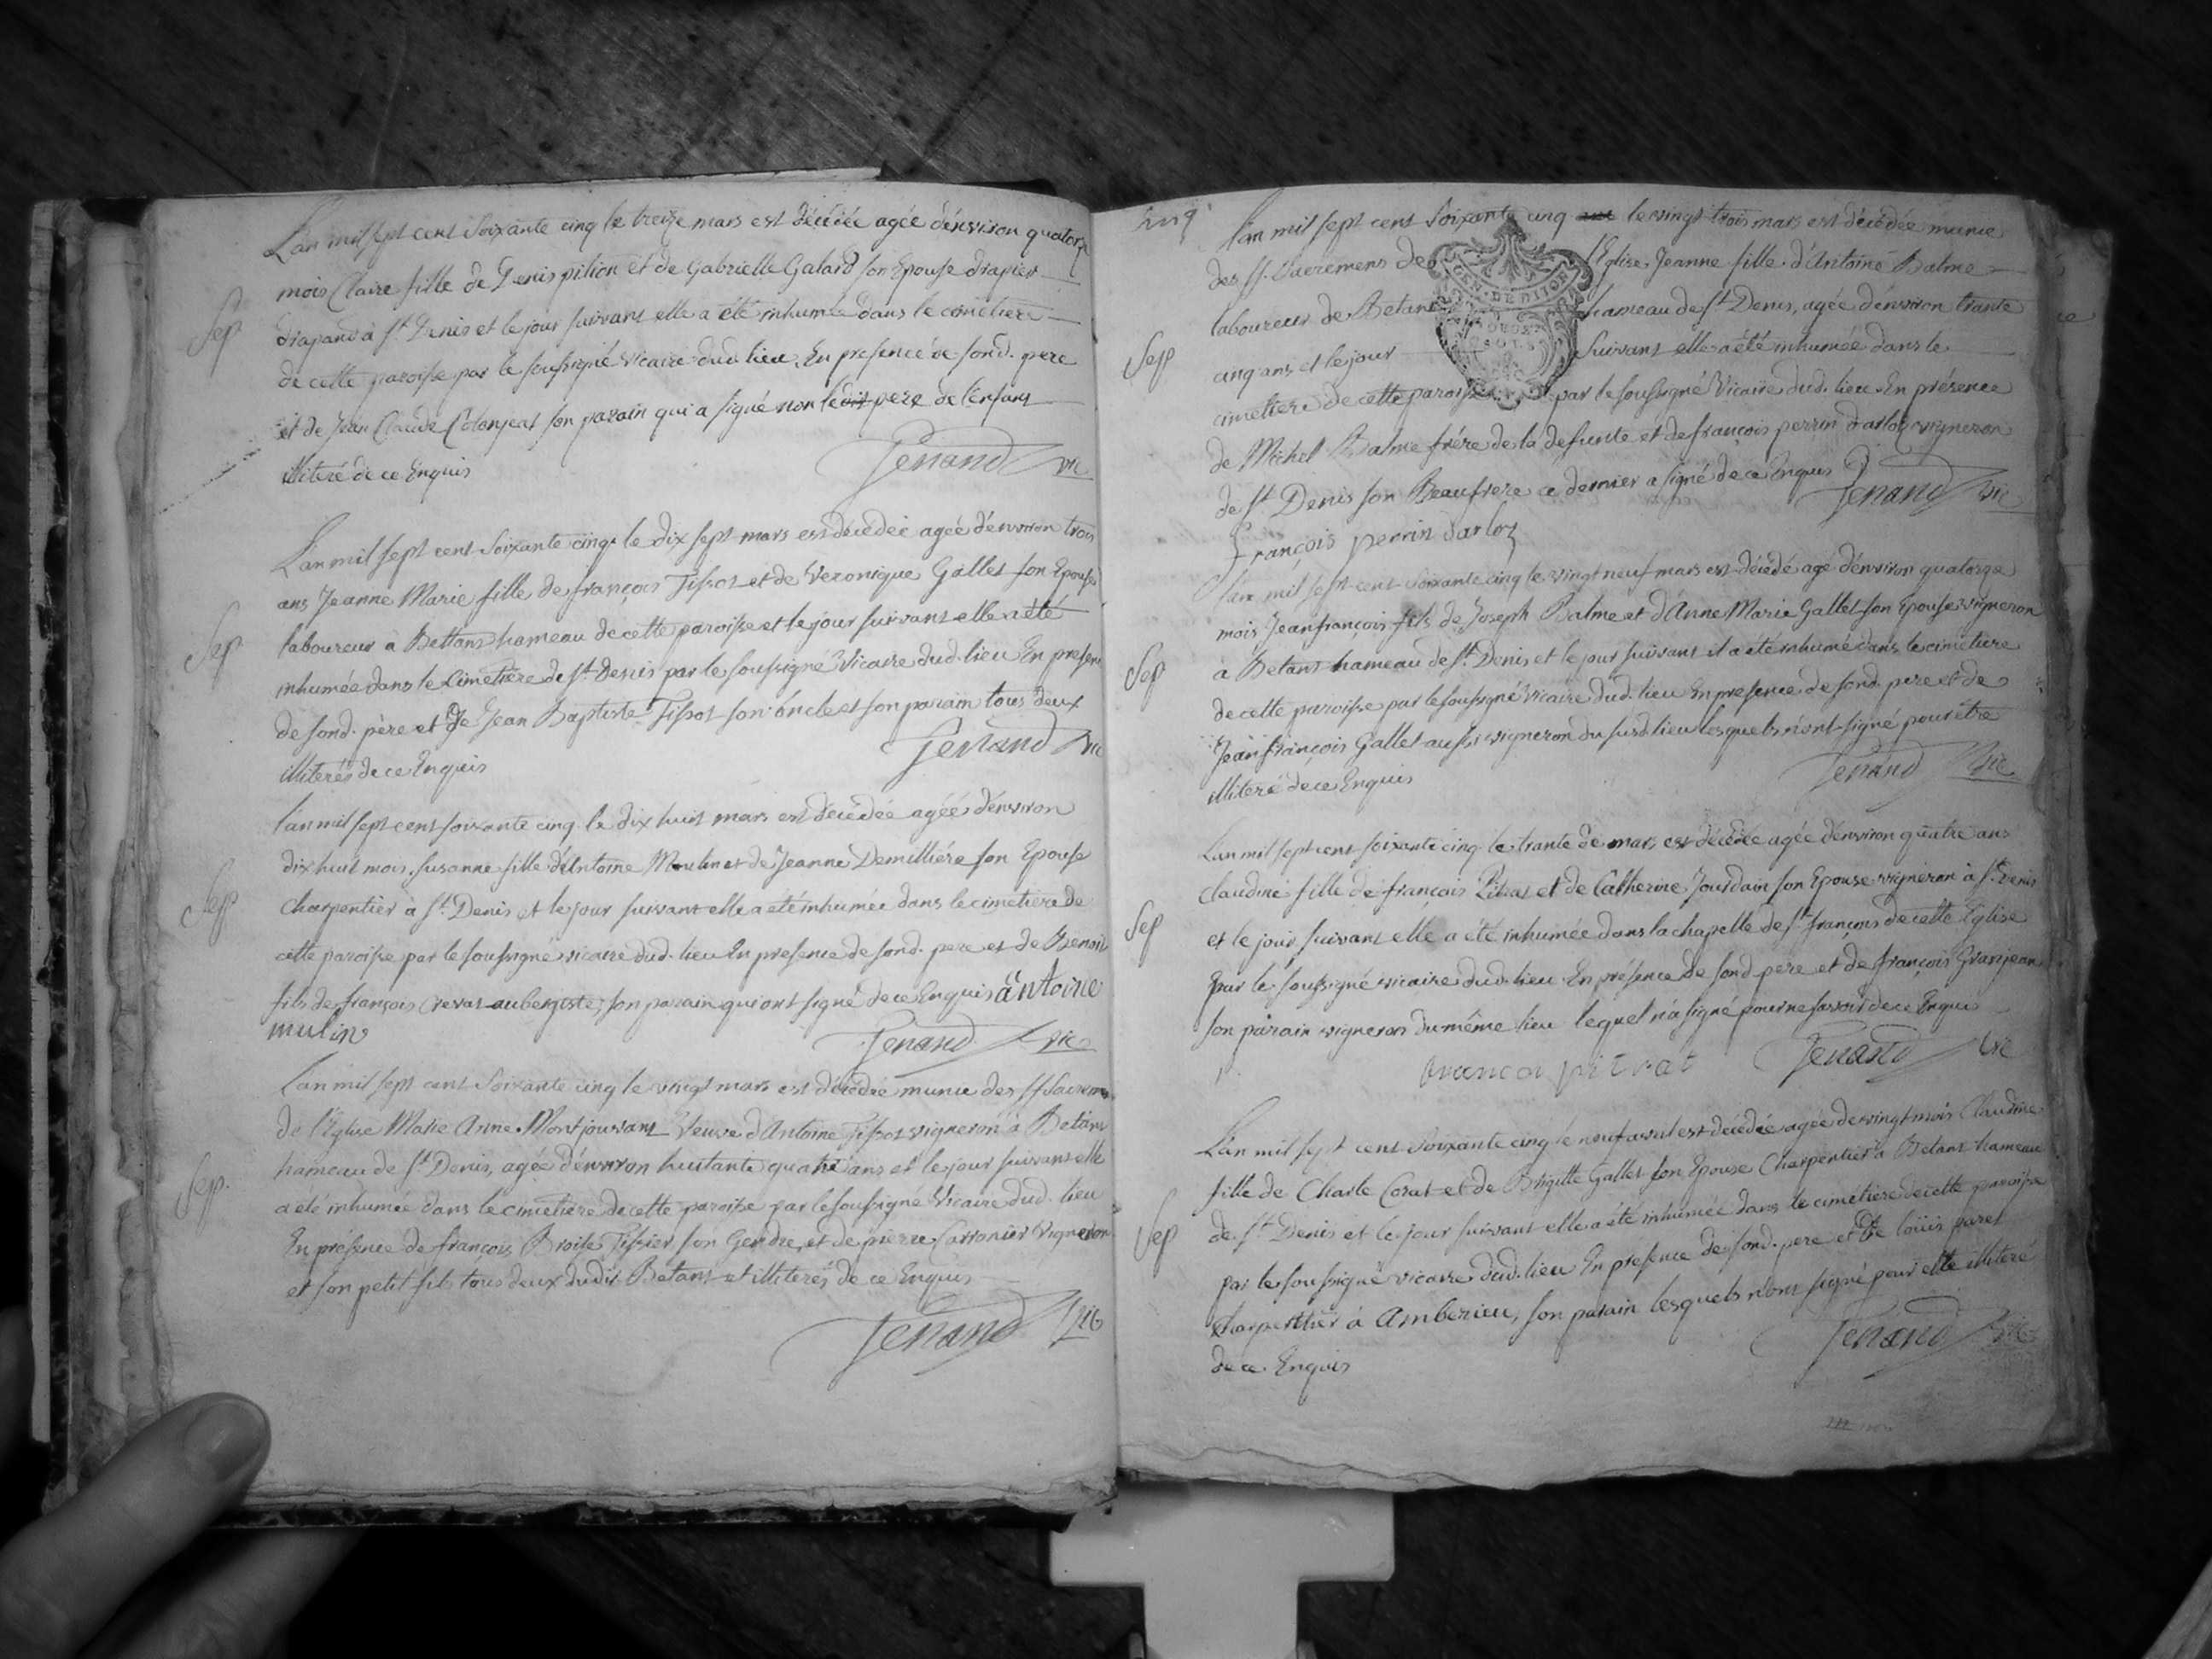 L'an mil sept cent soixante cinq le treize mars est décédée agée d'environ quatorze
mois Claire fille de Denis pition et de Gabrielle Galard son Epouse drapier
drapand à St. Denis et le jour suivant elle a été inhumée dans le cimetiere
Sep
de cette paroisse par le soussigné vicaire dud. lieu. En presence de sond. pere
et de Jean Claude Colonjeat son parain qui a signé non le dit pere de l'enfant
illiteré de ce Enquis
Jenand vic
L'an mil sept cent soixante cinq le dix sept mars est décédée agée d'environ trois
ans Jeanne Marie fille de françois Tissot et de Veronique Gallet son Epouse
Sep
laboureur à Bettans hameau de cette paroisse et le jour suivant elle a été
inhumée dans le Cimetière de St. Denis par le soussigné Vicaire dud. lieu En presen
de sond. père et de Jean Baptiste Tissot son oncle et son parain tous deux
illiterés de ce Enquis
Jenand vic
l'an mil sept cent soixante cinq le dix huit mars est décédée agée d'environ
dix huit mois Susanne fille d'Antoine Moulin et de Jeanne Demilliére son Epouse
Sep
Charpentier à St. Denis et le jour suivant elle a été inhumée dans le cimetiere de
cette paroisse par le soussigné vicaire dud. lieu En presence de sond. pere et de Benoit
fils de françois Crevat aubergiste, son parain qui ont signé de ce Enquis antoine
mulin
Jenand vic
L'an mil sept cent soixante cinq le vingt mars est décédée munie des SS. Sacremens
de l'Eglise Marie Anne Montjouvant Veuve d'Antoine Tissot vigneron à Betans
hameau de St. Denis, agée d'environ huitante quatre ans et le jour suivant elle
Sep.
a été inhumée dans le cimetiere de cette paroisse par le soussigné Vicaire dud. lieu
En présence de françois Broise Tissier son Gendre, et de pierre Carronier Vigneron
et son petit fils tous deux dudit Betans et illiterés de ce Enquis
Jenand Vic
Cinq
l'an mil sept cent soixante cinq le vingt trois mars est décédée munie
des SS. Sacremens de l'Eglise Jeanne fille d'Antoine Balme
GEN. DE DIJON
laboureur de Betans hameau de St. Denis, agée d'environ trante
Sep
cinq ans et le jour suivant elle a été inhumée dans le
cimetiere de cette paroisse par le soussigné Vicaire dud. lieu En présence
de Michel Balme frére de la defunte et de françois perrin d'arloz vigneron
de St. Denis son Beaufrere ce dernier a signé de ce Enquis
Jenand vic
françois perrin darloz
l'an mil sept cent soixante cinq le vingt neuf mars est décédé agé d'environ quatorze
mois Jean françois fils de Joseph Balme et d'Anne Marie Gallet son Epouse vigneron
Sep
à Betans hameau de St. Denis et le jour suivant il a été inhumé dans le cimetiere
de cette paroisse par le soussigné vicaire dud. lieu En presence de sond. pere et de
Jean françois Gallet aussi vigneron du susd. lieu lesquels n'ont signé pour être
illiteré de ce Enquis
Jenand Vic
L'an mil sept cent soixante cinq le trante de mars est décédée agée d'environ quatre ans
Claudine fille de françois Pitrat et de Catherine Jourdain son Epouse vigneron à St. Denis
Sep
et le jour suivant elle a été inhumée dans la chapelle de St. françois de cette Eglise
par le soussigné vicaire dud. lieu En présence de sond. pere et de françois Granjean
son parain vigneron du même lieu lequel n'a signé pour ne savoir de ce Enquis
francoi pitrat
Jenand vic
L'an mil sept cent soixante cinq le neuf avril est décédée agée de vingt mois Claudine
fille de Charle Corat et de Brigitte Gallet son Epouse Charpentier à Betans hameau
Sep
de St. Denis et le jour suivant elle a été inhumée dans le cimétiere de cette paroisse
par le soussigné vicaire dud. lieu En presence de sond. pere et de loüis paret
charpentier à Amberieu, son parain lesquels n'ont signé pour etre illiteré
de ce Enquis
Jenand vic